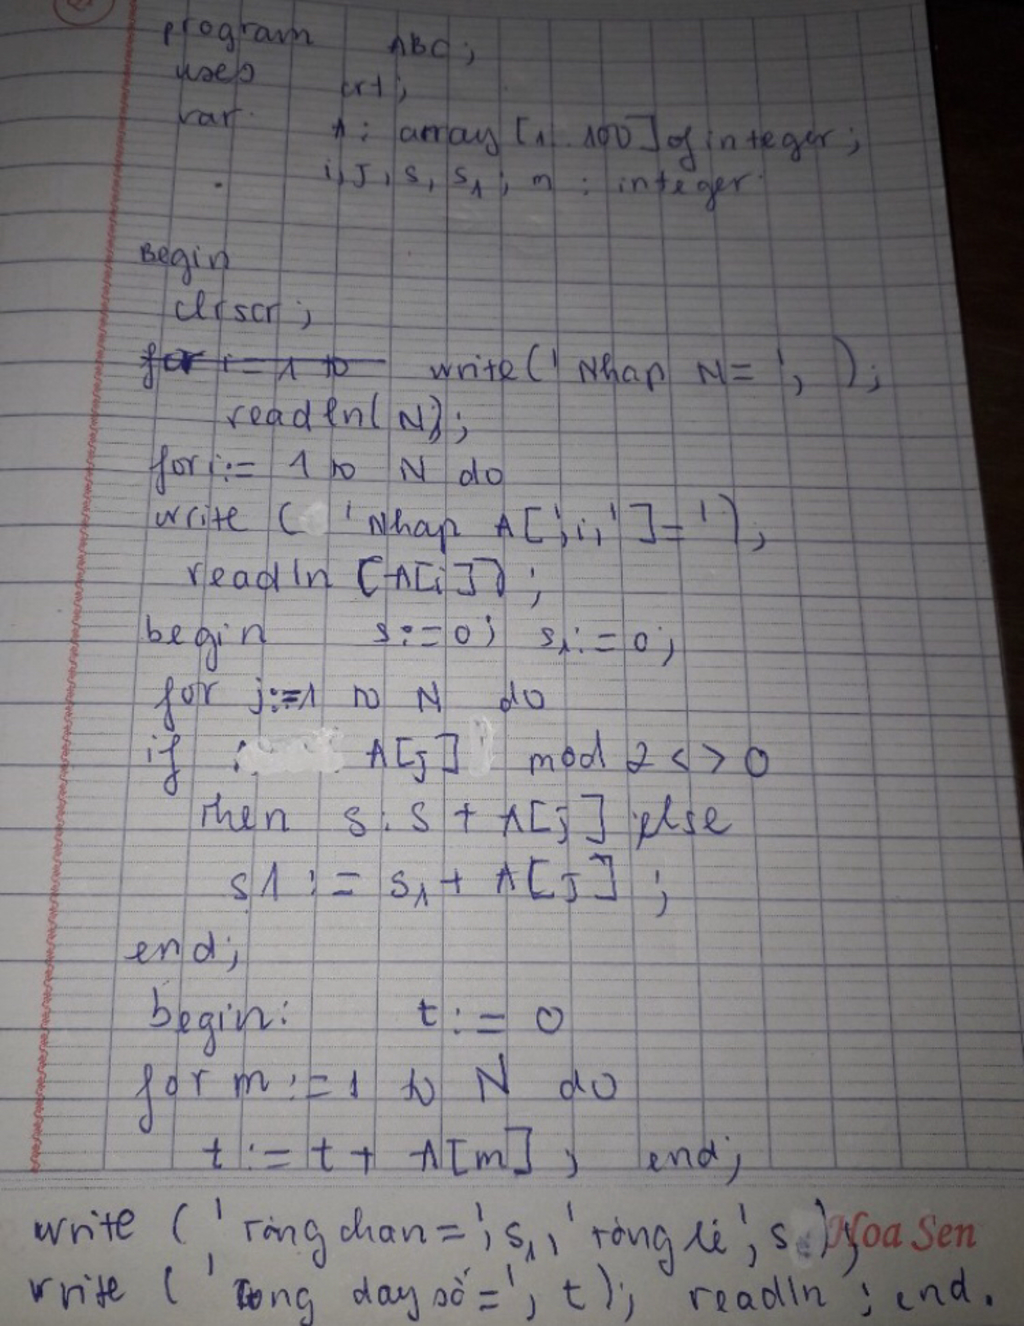 program ABC;
uses crt;
var A: array [1..100] of integer;
i, J, s, s1, m : integer
Begin
clrscr;
for i = 1 to write(' Nhap N= ', );
readln(N);
for i:= 1 to N do
write ( 'Nhap A[',i,']=');
readln (A[i]);
begin s:=0; s1:=0;
for j:=1 to N do
if A[j] mod 2 <> 0
then s:s + A[j] else
s1 := s1 + A[J] ;
end;
begin: t := 0
for m :=1 to N do
t := t + A[m] ; end;
write ( ' tong chan=', s1, ' tong lẻ', s );
Hoa Sen
write ( ' tong day số =', t); readln ; end.